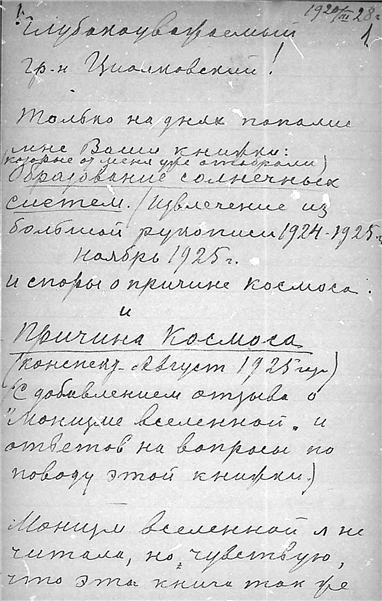 1928 г.
1
Глубокоуважаемый
гр-н Циолковский!
Только на днях попалис
мне Ваши книжки:
которые от меня уже отобрали)
Образование солнечных
систем. (Извлечение из
большой рукописи 1924-1925 г.
Ноябрь 1925 г.
и споры о причине космоса.
и
Причина Космоса
(конспект - Август 1925 год)
(С добавлением отзыва о
"Монизме вселенной" и
ответов на вопросы по
поводу этой книжки.)
Монизм вселенной я не
читала, но, чувствую,
что эта книга так же